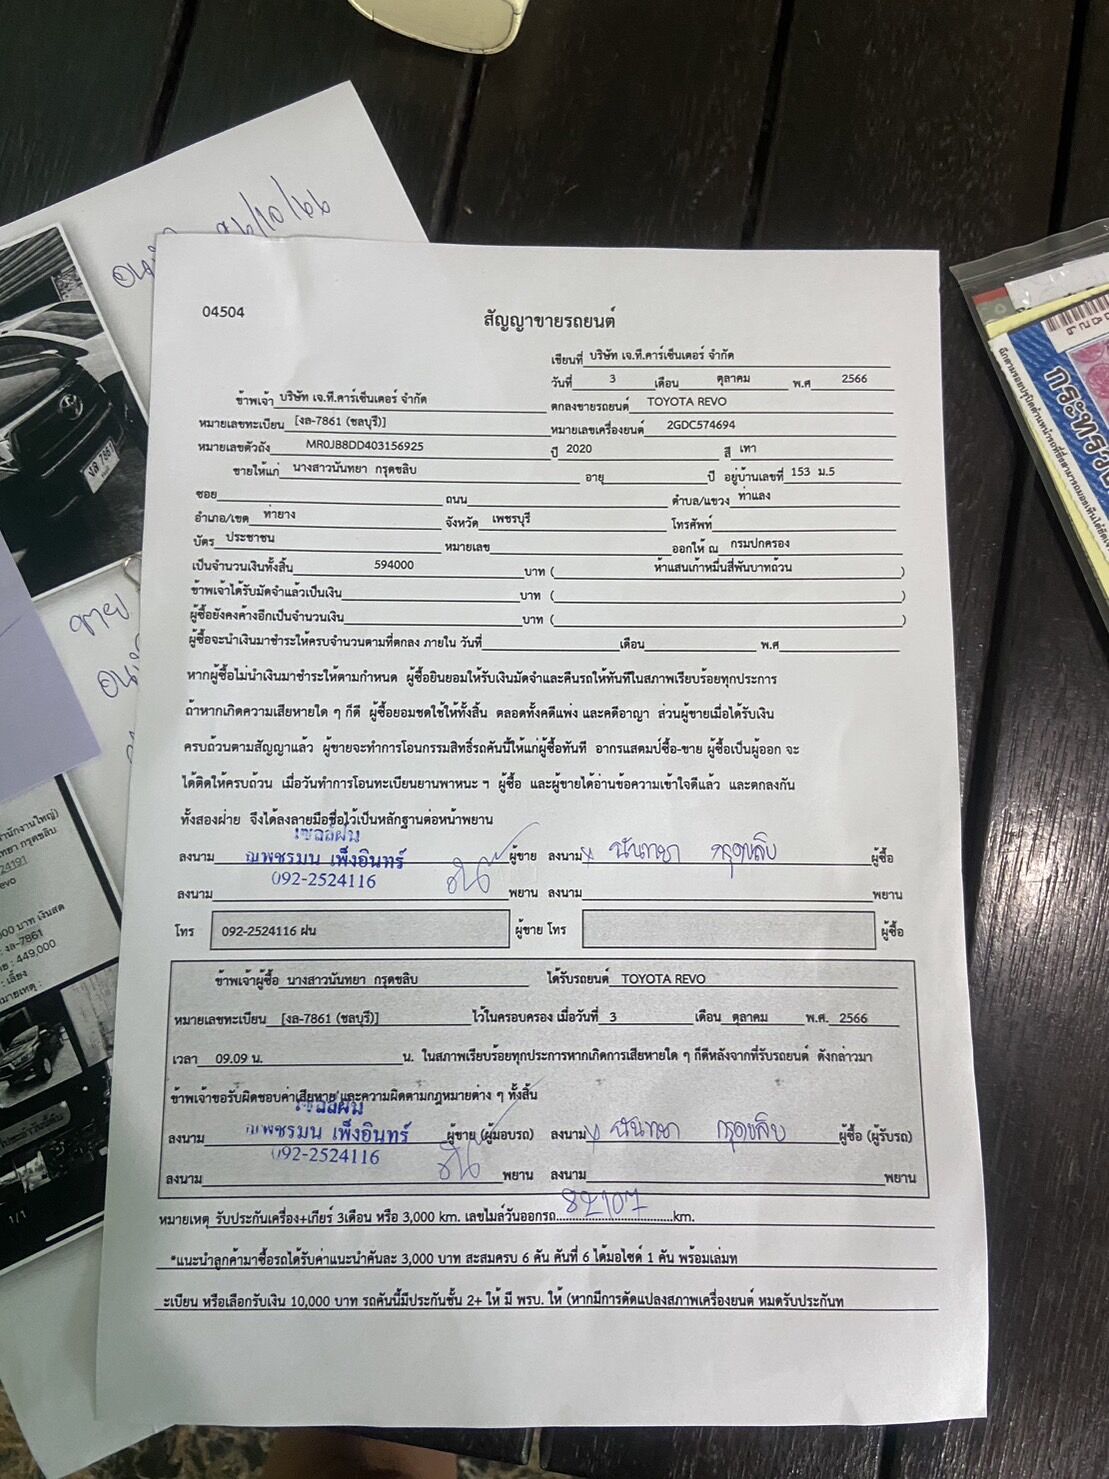 04504
สัญญาขายรถยนต์
เขียนที่ บริษัท เจ.ที.คาร์เซ็นเตอร์ จำกัด
วันที่ 3 เดือน ตุลาคม พ.ศ 2566
ข้าพเจ้า บริษัท เจ.ที.คาร์เซ็นเตอร์ จำกัด ตกลงขายรถยนต์ TOYOTA REVO
หมายเลขทะเบียน [งล-7861 (ชลบุรี)] หมายเลขเครื่องยนต์ 2GDC574694
หมายเลขตัวถัง MR0JB8DD403156925 ปี 2020 สี เทา
ขายให้แก่ นางสาวนันทยา กรุดขลิบ อายุ ปี อยู่บ้านเลขที่ 153 ม.5
ซอย ถนน ตำบล/แขวง ท่าแลง
อำเภอ/เขต ท่ายาง จังหวัด เพชรบุรี โทรศัพท์
บัตร ประชาชน หมายเลข ออกให้ ณ กรมปกครอง
เป็นจำนวนเงินทั้งสิ้น 594000 บาท ( ห้าแสนเก้าหมื่นสี่พันบาทถ้วน )
ข้าพเจ้าได้รับมัดจำแล้วเป็นเงิน บาท ( )
ผู้ซื้อยังคงค้างอีกเป็นจำนวนเงิน บาท ( )
ผู้ซื้อจะนำเงินมาชำระให้ครบจำนวนตามที่ตกลง ภายใน วันที่ เดือน พ.ศ
หากผู้ซื้อไม่นำเงินมาชำระให้ตามกำหนด ผู้ซื้อยินยอมให้รับเงินมัดจำและคืนรถให้ทันทีในสภาพเรียบร้อยทุกประการ
ถ้าหากเกิดความเสียหายใด ๆ ก็ดี ผู้ซื้อยอมชดใช้ให้ทั้งสิ้น ตลอดทั้งคดีแพ่ง และคดีอาญา ส่วนผู้ขายเมื่อได้รับเงิน
ครบถ้วนตามสัญญาแล้ว ผู้ขายจะทำการโอนกรรมสิทธิ์รถคันนี้ให้แก่ผู้ซื้อทันที อากรแสตมป์ซื้อ-ขาย ผู้ซื้อเป็นผู้ออก จะ
ได้ติดให้ครบถ้วน เมื่อวันทำการโอนทะเบียนยานพาหนะ ฯ ผู้ซื้อ และผู้ขายได้อ่านข้อความเข้าใจดีแล้ว และตกลงกัน
ทั้งสองฝ่าย จึงได้ลงลายมือชื่อไว้เป็นหลักฐานต่อหน้าพยาน
เซลล์ฝน
ลงนาม ณพชรมน เพ็งอินทร์ ผู้ขาย ลงนาม x นันทยา กรุดขลิบ ผู้ซื้อ
092-2524116
ลงนาม พยาน ลงนาม พยาน
โทร 092-2524116 ฝน ผู้ขาย โทร ผู้ซื้อ
ข้าพเจ้าผู้ซื้อ นางสาวนันทยา กรุดขลิบ ได้รับรถยนต์ TOYOTA REVO
หมายเลขทะเบียน [งล-7861 (ชลบุรี)] ไว้ในครอบครอง เมื่อวันที่ 3 เดือน ตุลาคม พ.ศ. 2566
เวลา 09.09 น. น. ในสภาพเรียบร้อยทุกประการหากเกิดการเสียหายใด ๆ ก็ดีหลังจากที่รับรถยนต์ ดังกล่าวมา
ข้าพเจ้าขอรับผิดชอบค่าเสียหาย และความผิดตามกฎหมายต่าง ๆ ทั้งสิ้น
เซลล์ฝน
ลงนาม ณพชรมน เพ็งอินทร์ ผู้ขาย (ผู้มอบรถ) ลงนาม x นันทยา กรุดขลิบ ผู้ซื้อ (ผู้รับรถ)
092-2524116
ลงนาม พยาน ลงนาม พยาน
หมายเหตุ รับประกันเครื่อง+เกียร์ 3เดือน หรือ 3,000 km. เลขไมล์วันออกรถ 82107 km.
*แนะนำลูกค้ามาซื้อรถได้รับค่าแนะนำคันละ 3,000 บาท สะสมครบ 6 คัน คันที่ 6 ได้มอไซด์ 1 คัน พร้อมเล่มท
ะเบียน หรือเลือกรับเงิน 10,000 บาท รถคันนี้มีประกันชั้น 2+ ให้ มี พรบ. ให้ (หากมีการดัดแปลงสภาพเครื่องยนต์ หมดรับประกันท
งล 7861
ขาย
ำนักงานใหญ่)
ทยา กรุดขลิบ
24191
evo
000 บาท เงินสด
: งล-7861
าย : 449,000
: เลี้ยง
มายเหตุ :
1/1